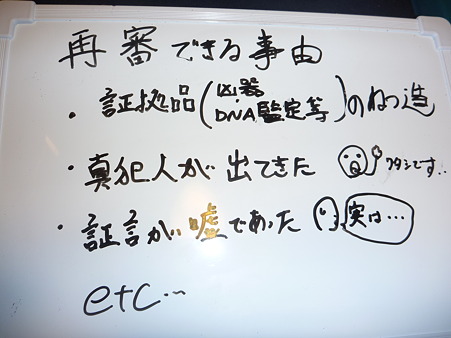 再審できる事由
・証拠品(凶器 DNA鑑定等)のねつ造
・真犯人が出てきた ワタシです..
・証言が嘘であった 実は…
etc…